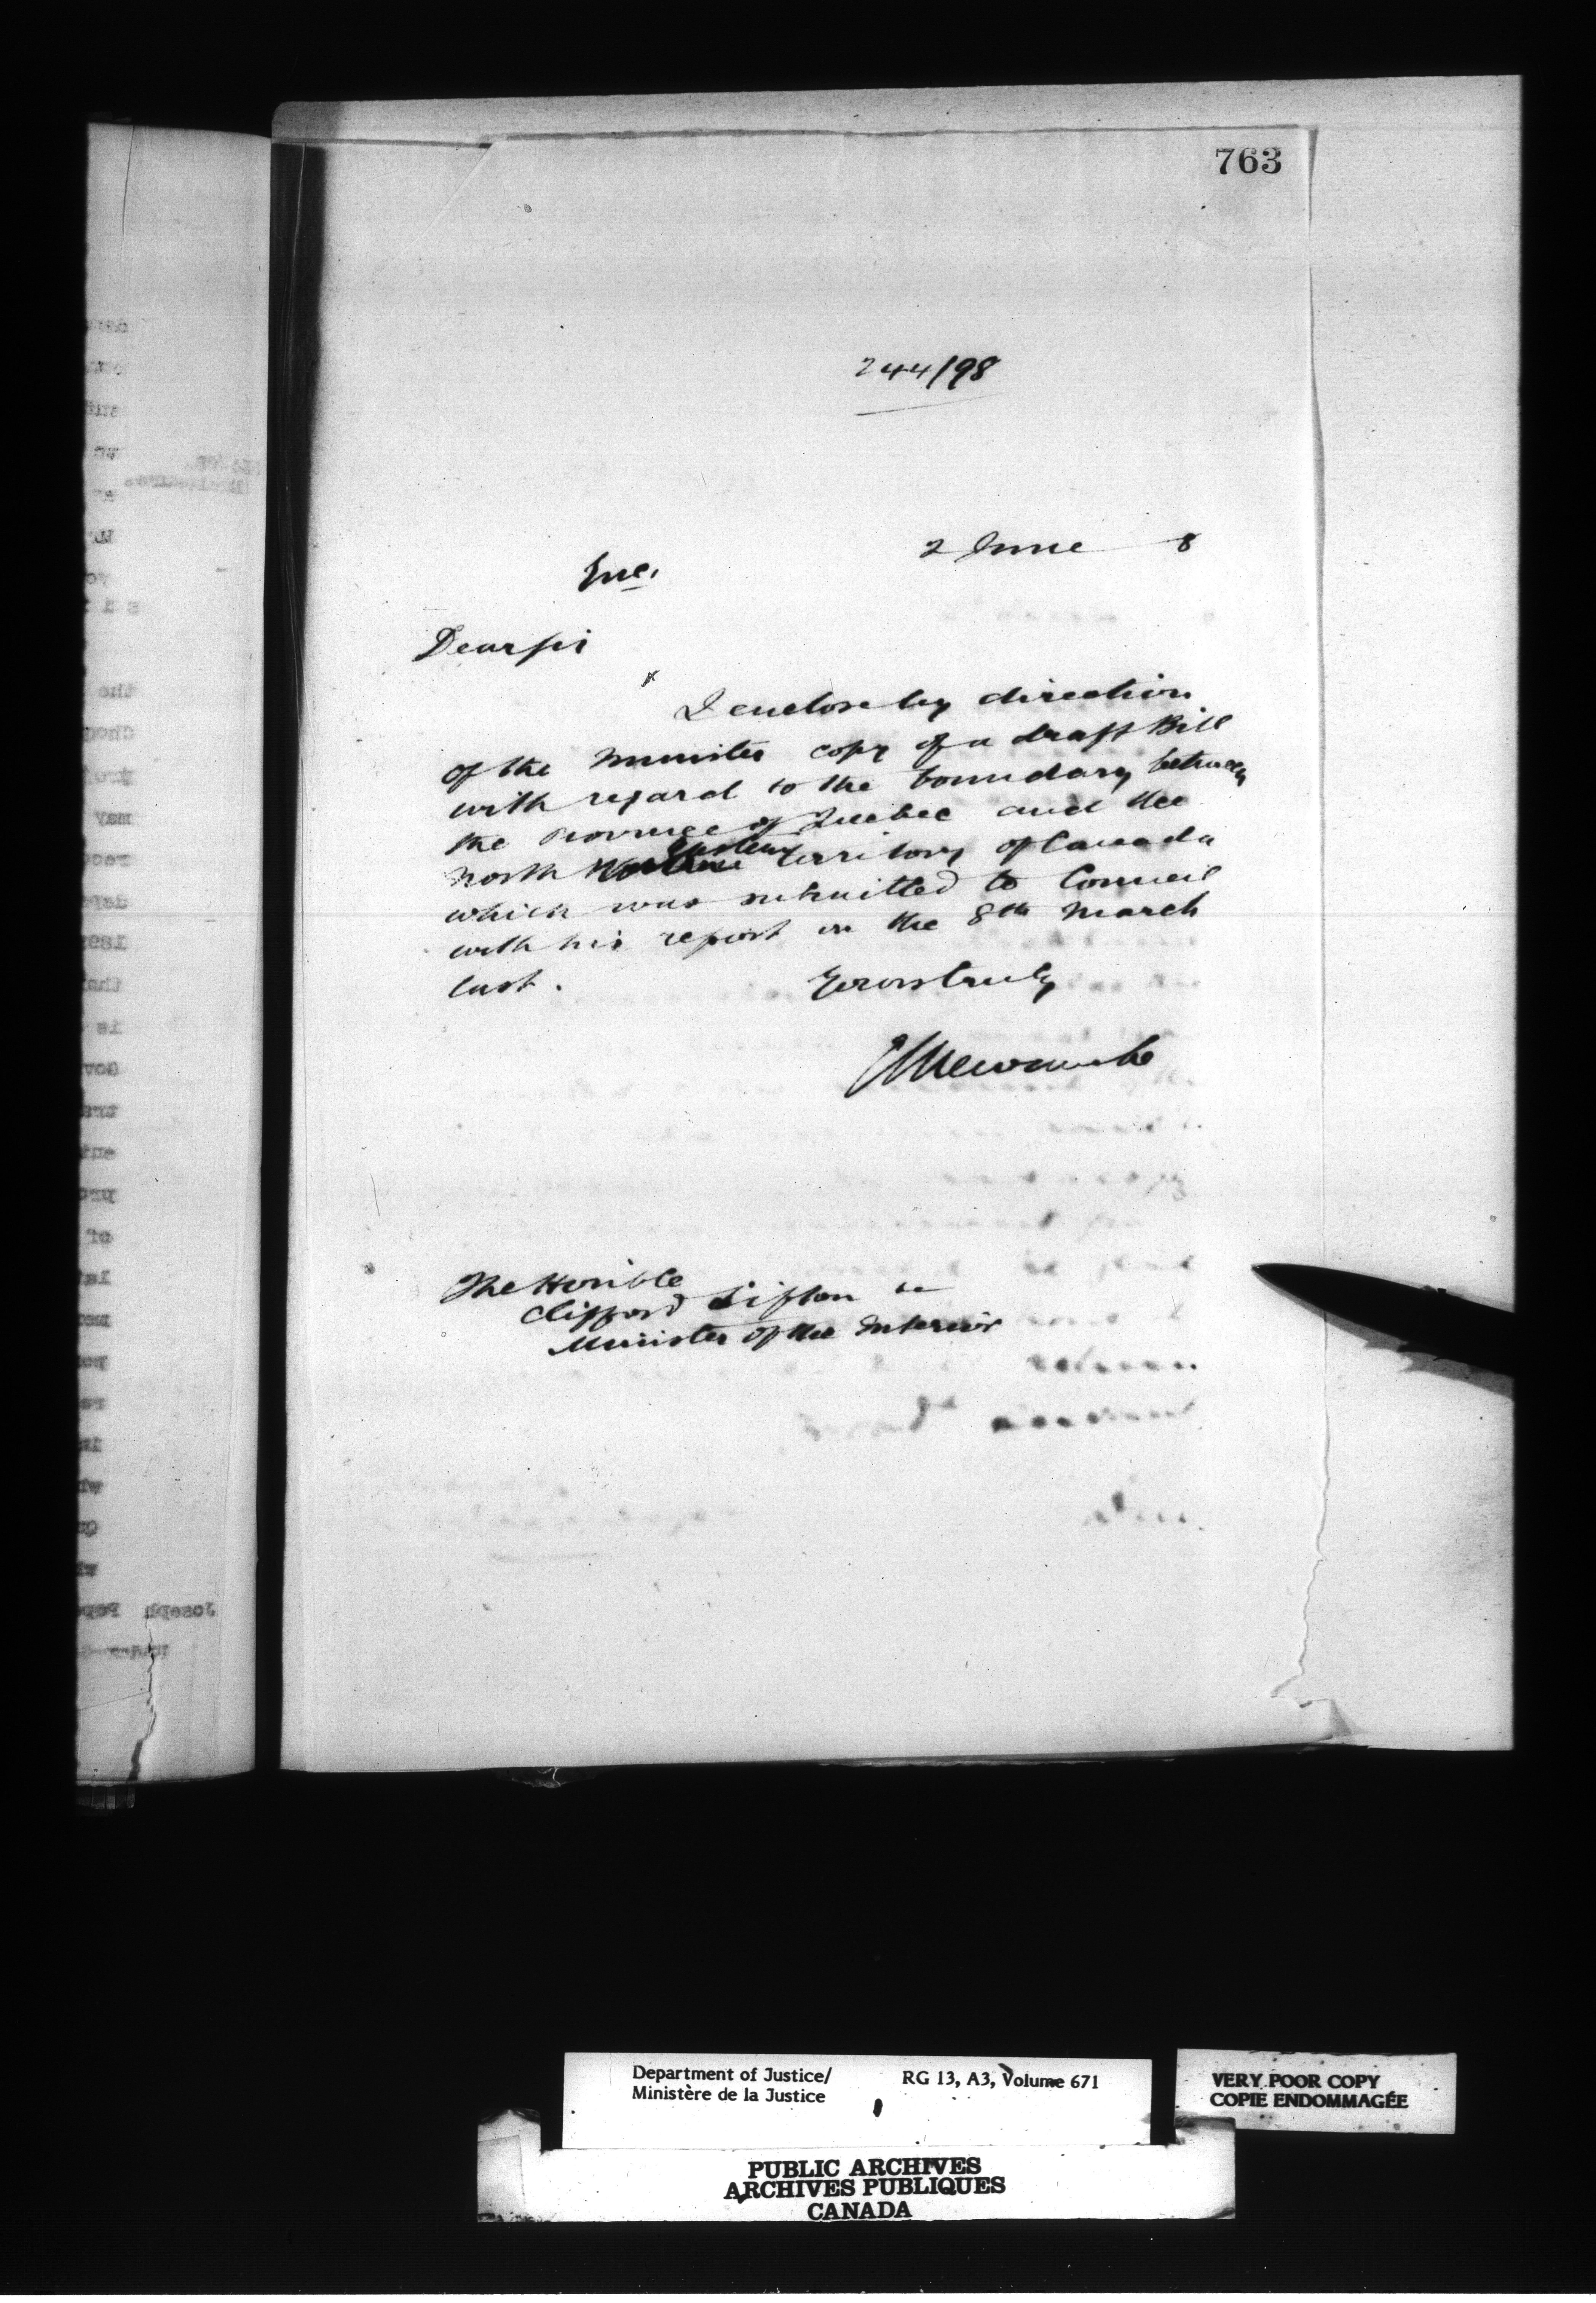 763
244/98
2 June 8
Enc.
Dear Sir
I enclose by direction
of the Minister copy of a draft Bill
with regard to the boundary between
the Province of Quebec and the
North Eastern Territory of Canada
which was submitted to Council
with his report on the 8th March
last.
Yours truly
E L Newcombe
The Honible
Clifford Sifton
Minister of the Interior
Joseph Pope
Department of Justice/
Ministère de la Justice
RG 13, A3, Volume 671
VERY POOR COPY
COPIE ENDOMMAGÉE
PUBLIC ARCHIVES
ARCHIVES PUBLIQUES
CANADA